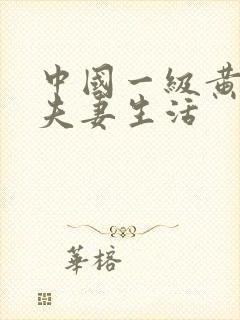 中國一級黃
夫妻生活
華榕